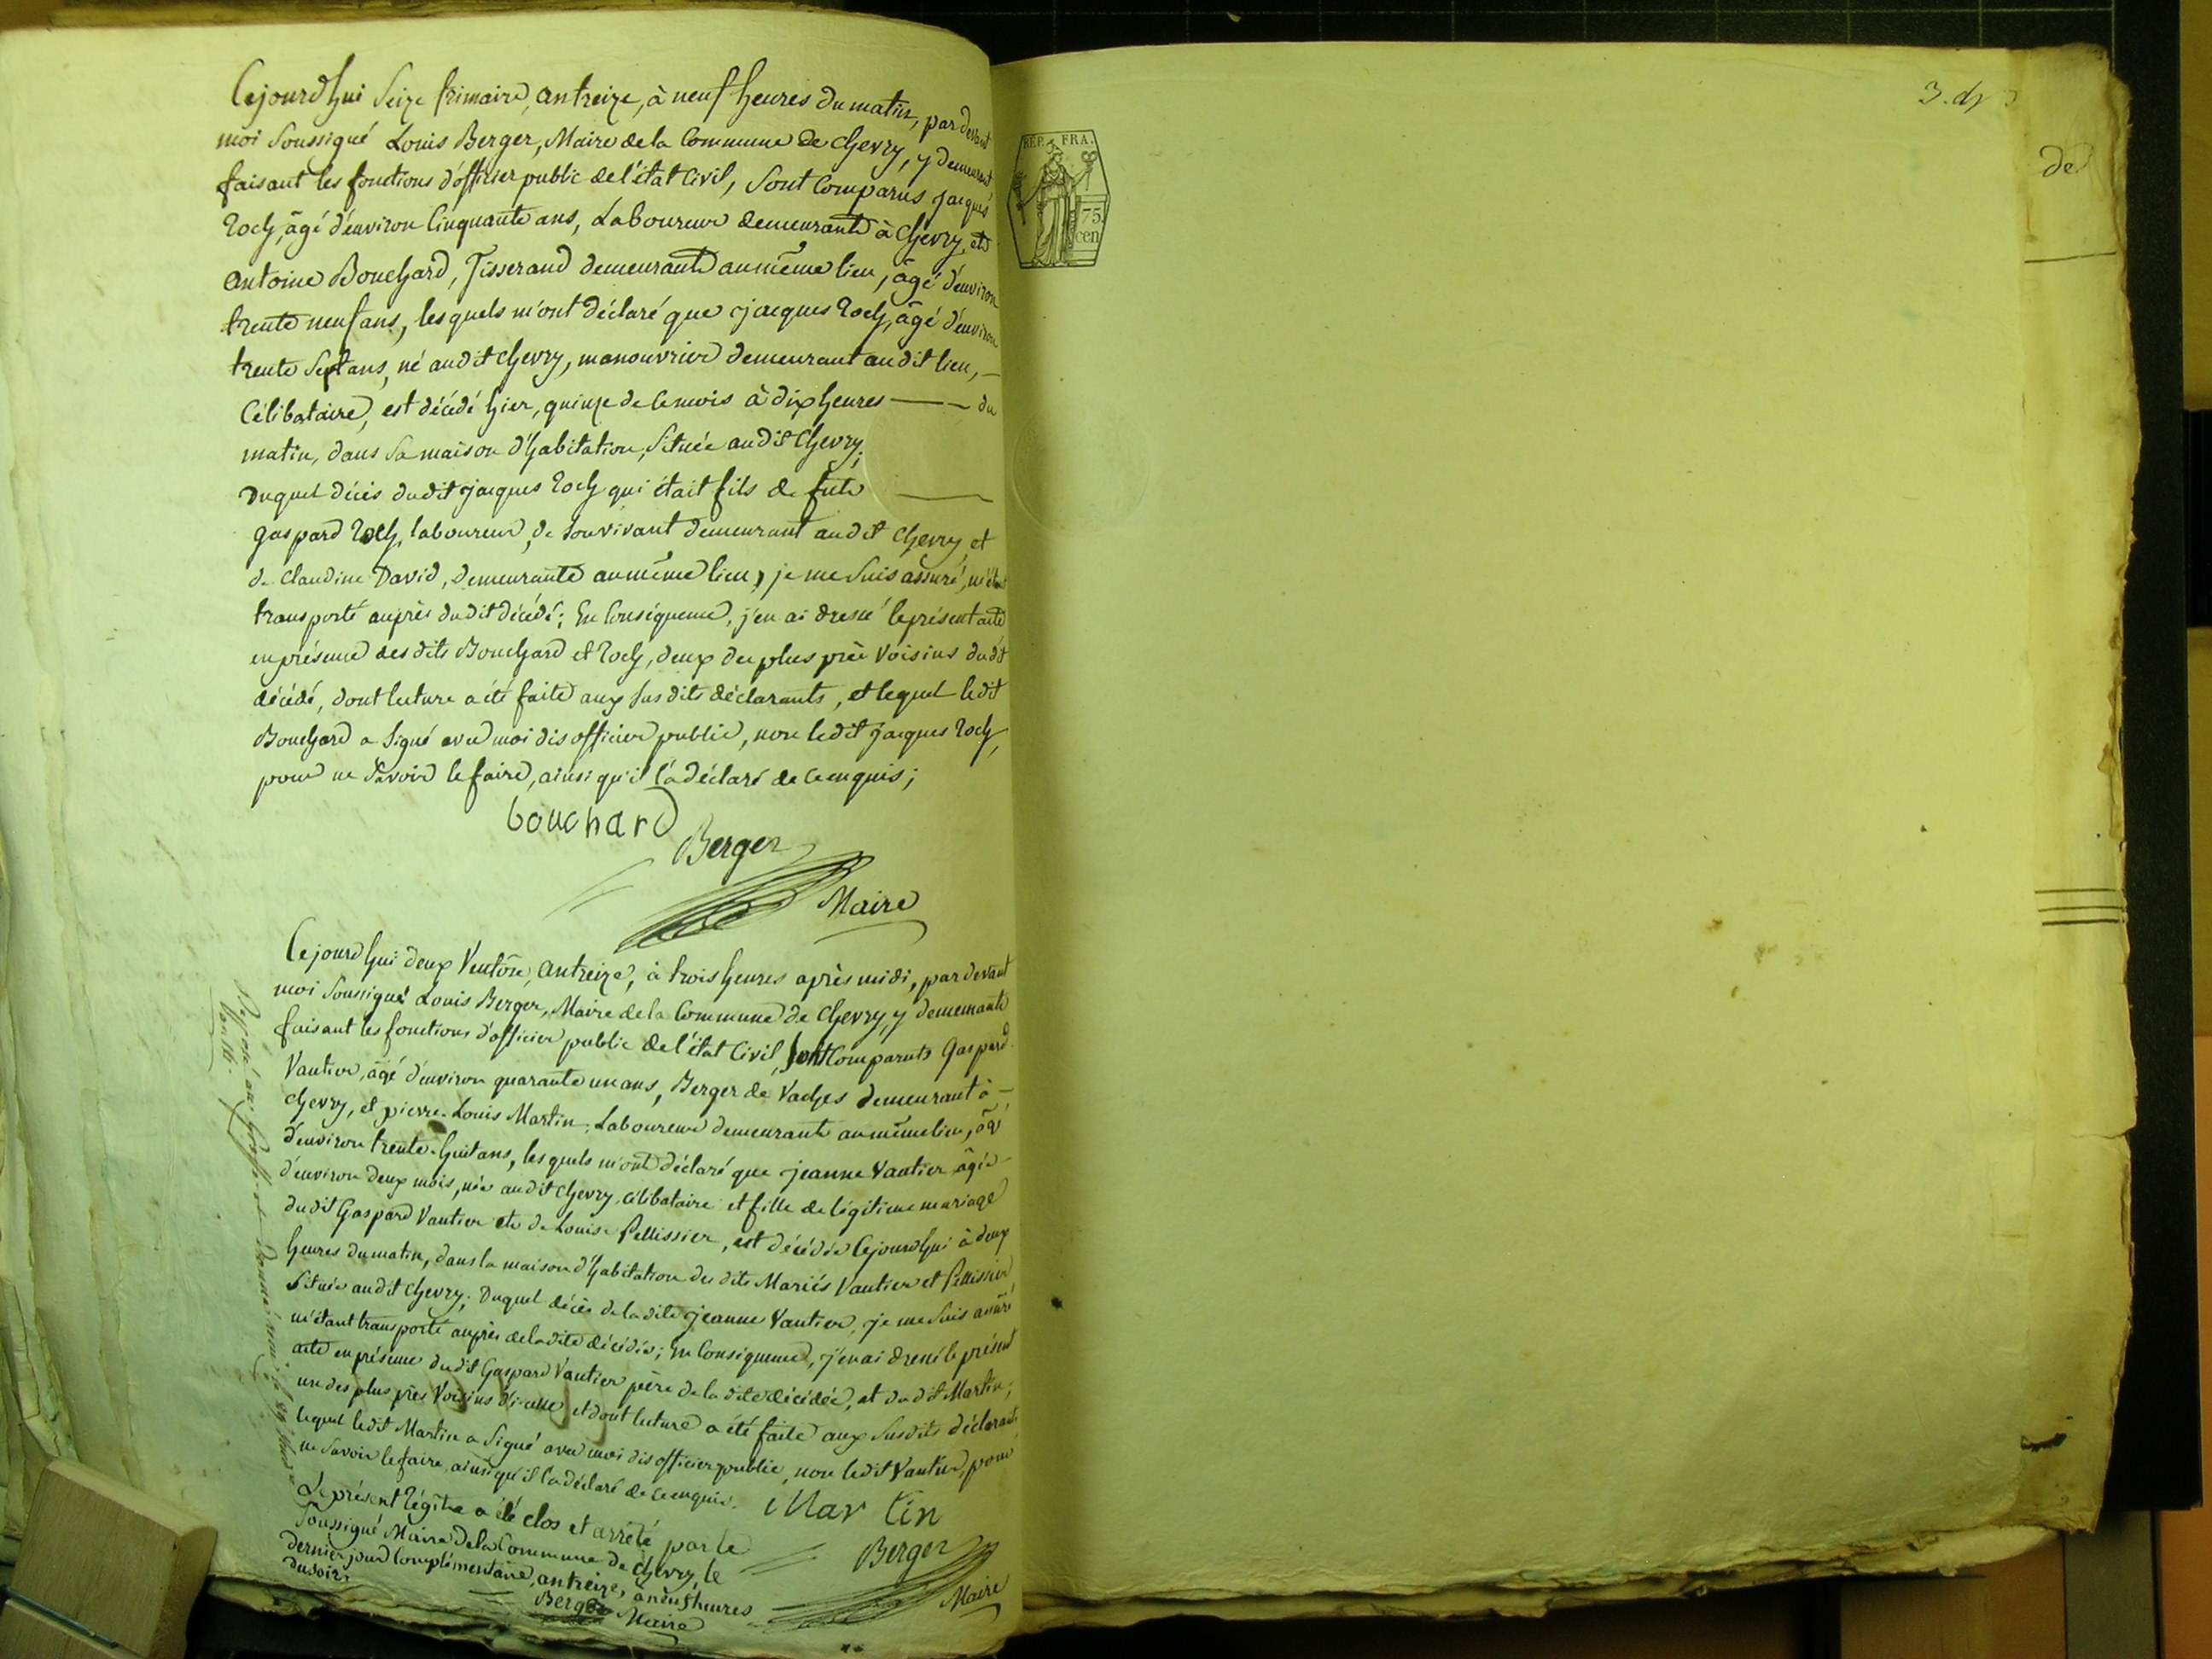 Cejourd'hui seize frimaire, an treize, à neuf heures du matin, par devant
moi soussigné Louis Berger, Maire de la Commune de Chevry, y demeurant
faisant les fonctions d'officier public de l'état Civil, sont Comparus jacques
Roch, âgé d'environ Cinquante ans, Laboureur demeurant à Chevry, et
antoine Bouchard, Tisserand demeurant au même lieu, âgé d'environ
trente neuf ans, lesquels m'ont déclaré que jacques Roch, âgé d'environ
trente sept ans, né audit Chevry, manouvrier demeurant audit lieu,
Célibataire, est décédé hier, quinze de ce mois à dix heures du
matin, dans sa maison d'habitation, située audit Chevry;
Duquel décès dudit jacques Roch qui était fils de
gaspard Roch, laboureur, de son vivant demeurant audit Chevry, et
de Claudine David, demeurante au même lieu, je me suis assuré, m'étant
transporté auprès dudit décédé; En Conséquence, j'en ai dressé le présent acte
en présence desdits Bouchard et Roch, deux des plus près voisins dudit
décédé, dont lecture a été faite aux susdits déclarants, et lequel ledit
Bouchard a signé avec moi dis officier public, non ledit jacques Roch,
pour ne savoir le faire, ainsi qu'il l'a déclaré de ce enquis;
bouchard
Berger
Maire
Cejourd'hui deux Ventôse, an treize, à trois heures après midi, par devant
moi soussigné Louis Berger, Maire de la Commune de Chevry, y demeurant
faisant les fonctions d'officier public de l'état Civil, sont Comparuts Gaspard
Vautier, âgé d'environ quarante un ans, Berger de Vaches demeurant à
Chevry, et pierre-Louis Martin, Laboureur demeurant au même lieu, âgé
d'environ trente-huit ans, lesquels m'ont déclaré que jeanne Vautier âgée
d'environ deux mois, née audit Chevry, célibataire et fille de légitime mariage
dudit Gaspard Vautier et de Louise Pellissier, est décédée Cejourd'hui à deux
heures du matin, dans la maison d'habitation desdits Mariés Vautier et Pellissier
située audit Chevry; Duquel décès de ladite jeanne Vautier, je me suis assuré
m'étant transporté auprès de ladite décédée; En Conséquence, j'en ai dressé le présent
acte en présence dudit Gaspard Vautier père de ladite décédée, et dudit Martin,
un des plus près voisins d'icelle, et dont lecture a été faite aux susdits déclarants
lequel ledit Martin a signé avec moi dis officier public, non ledit Vautier, pour
ne savoir le faire, ainsi qu'il l'a déclaré de ce enquis.
Martin
Berger
Maire
Le présent Régître a été clos et arrêté par le
soussigné Maire de la Commune de Chevry, le
dernier jour Complémentaire, an treize, à neuf heures
du soir.
Berger
Maire
RÉP. FRA.
75
cen
de